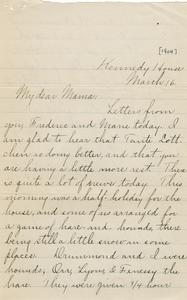 [1904]
Kennedy House
March 16.
My dear Mama:
Letters from
you, Frederic and Marie today. I
am glad to hear that Tante Lott-
chen is doing better, and that you
are having a little more rest. There
is quite a lot of news today. This
morning was a half-holiday for the
house, and some of us arranged for
a game of hare and hounds, there
being still a little snow in some
places. Drummond and I were
hounds, Orr, Lyons & Fenessy the
hare. They were given 3/4 hour